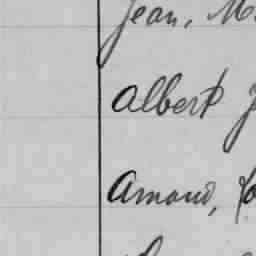 Jean, M
Albert J
Amand,